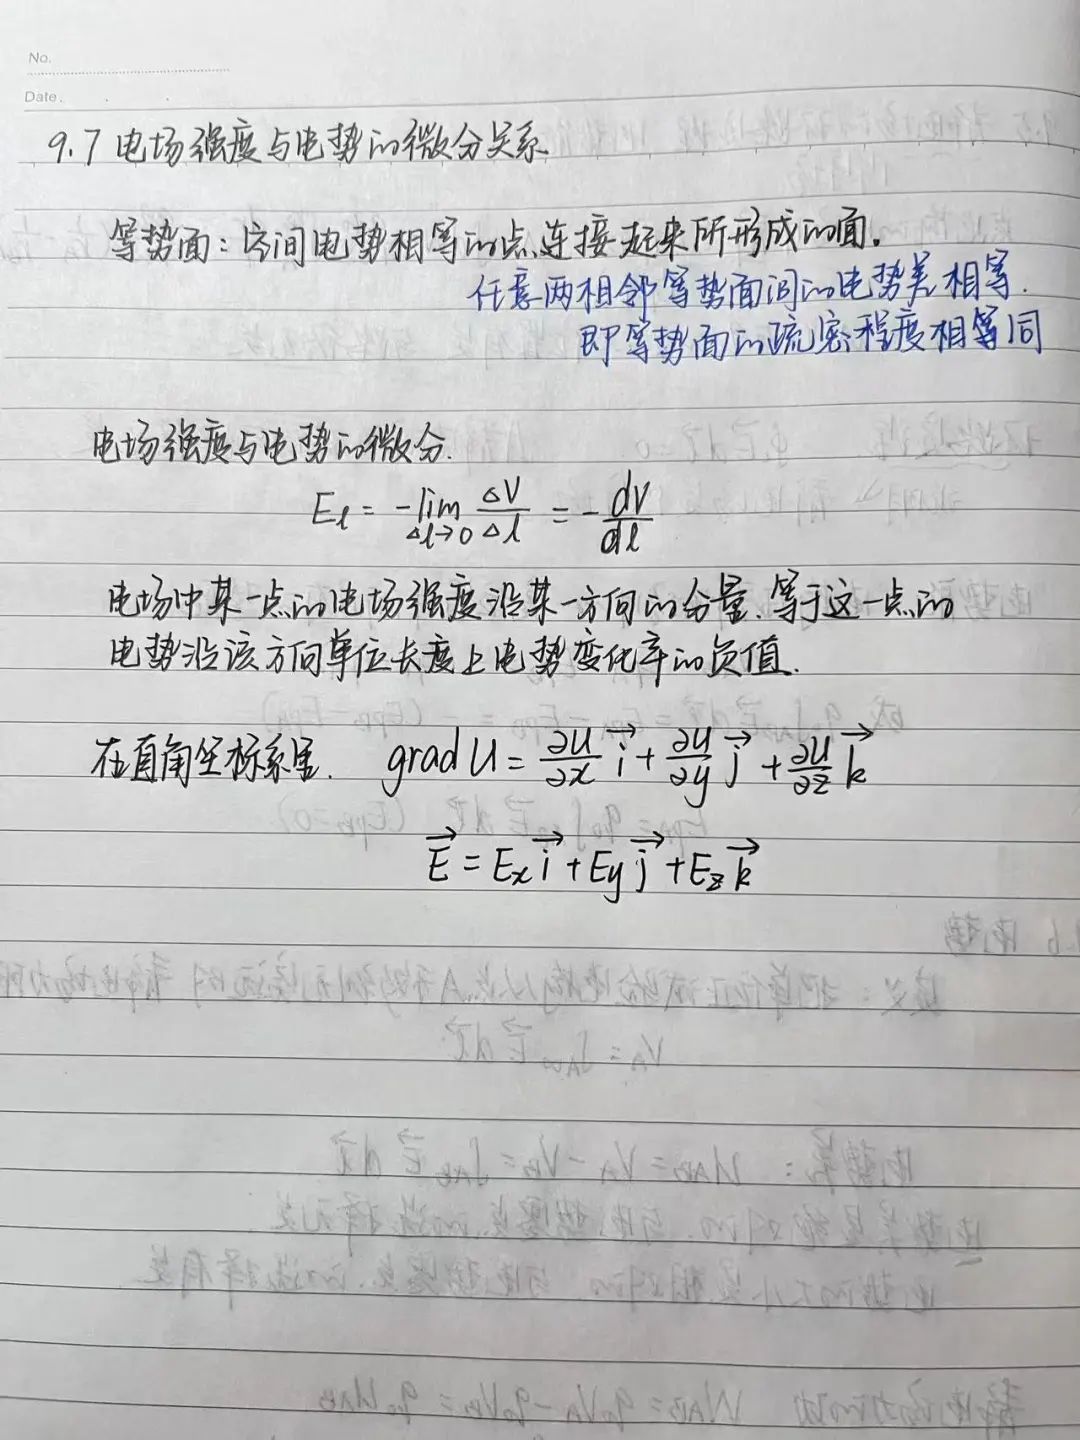 No.
Date.
9.7 电场强度与电势的微分关系
等势面：空间电势相等的点连接起来所形成的面。
任意两相邻等势面间的电势差相等.
即等势面的疏密程度相等同
电场强度与电势的微分.
E_l = -lim_{Δl→0} ΔV/Δl = -dV/dl
电场中某一点的电场强度沿某一方向的分量.等于这一点的
电势沿该方向单位长度上电势变化率的负值.
在直角坐标系里. grad U = ∂U/∂x i⃗ + ∂U/∂y j⃗ + ∂U/∂z k⃗
E⃗ = Ex i⃗ + Ey j⃗ + Ez k⃗